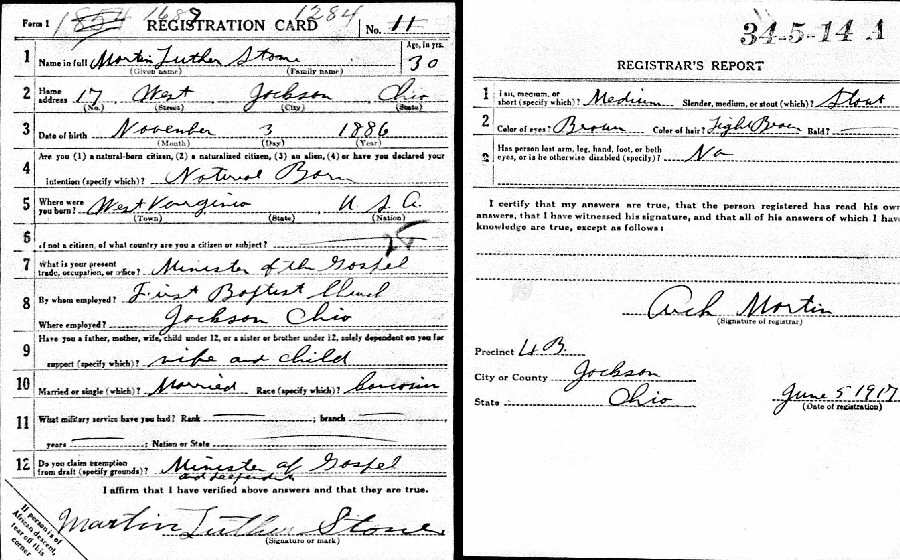 Form 1 1854 1688 REGISTRATION CARD 1284 No. 11
1 Name in full Martin Luther Stone Age, in yrs. 30
(Given name) (Family name)
2 Home address 17 West Jackson Ohio
(No.) (Street) (City) (State)
3 Date of birth November 3 1886
(Month) (Day) (Year)
4 Are you (1) a natural-born citizen, (2) a naturalized citizen, (3) an alien, (4) or have you declared your
intention (specify which)? Natural Born
5 Where were you born? West Virginia U. S. A.
(Town) (State) (Nation)
6 If not a citizen, of what country are you a citizen or subject?
7 What is your present trade, occupation, or office? Minister of the Gospel 25
8 By whom employed? First Baptist Church
Where employed? Jackson Ohio
9 Have you a father, mother, wife, child under 12, or a sister or brother under 12, solely dependent on you for
support (specify which)? wife and child
10 Married or single (which)? Married Race (specify which)? Caucasian
11 What military service have you had? Rank ; branch ;
years ; Nation or State
12 Do you claim exemption from draft (specify grounds)? Minister of Gospel
and dependents
I affirm that I have verified above answers and that they are true.
Martin Luther Stone
(Signature or mark)
If person is of
African descent,
tear off this
corner.
34-5-14 A
REGISTRAR'S REPORT
1 Tall, medium, or short (specify which)? Medium Slender, medium, or stout (which)? Stout
2 Color of eyes? Brown Color of hair? Light Brown Bald?
3 Has person lost arm, leg, hand, foot, or both eyes, or is he otherwise disabled (specify)? No
I certify that my answers are true, that the person registered has read his own
answers, that I have witnessed his signature, and that all of his answers of which I have
knowledge are true, except as follows:
Arch Martin
(Signature of registrar)
Precinct 4 B
City or County Jackson
State Ohio June 5 1917
(Date of registration)